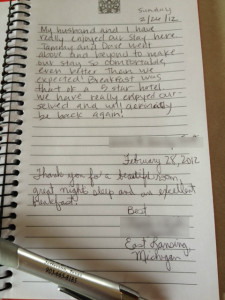 Sunday
2/26/12
My husband and I have
really enjoyed our stay here.
Tammy and Dave went
above and beyond to make
our stay so comfortable,
even better than we
expected! Breakfast was
that of a 5 star hotel
We have really enjoyed our
selved and will certainly
be back again!
February 28, 2012
Thank you for a beautiful room,
great nights sleep and an excellent
Breakfast!
Best
East Lansing
Michigan